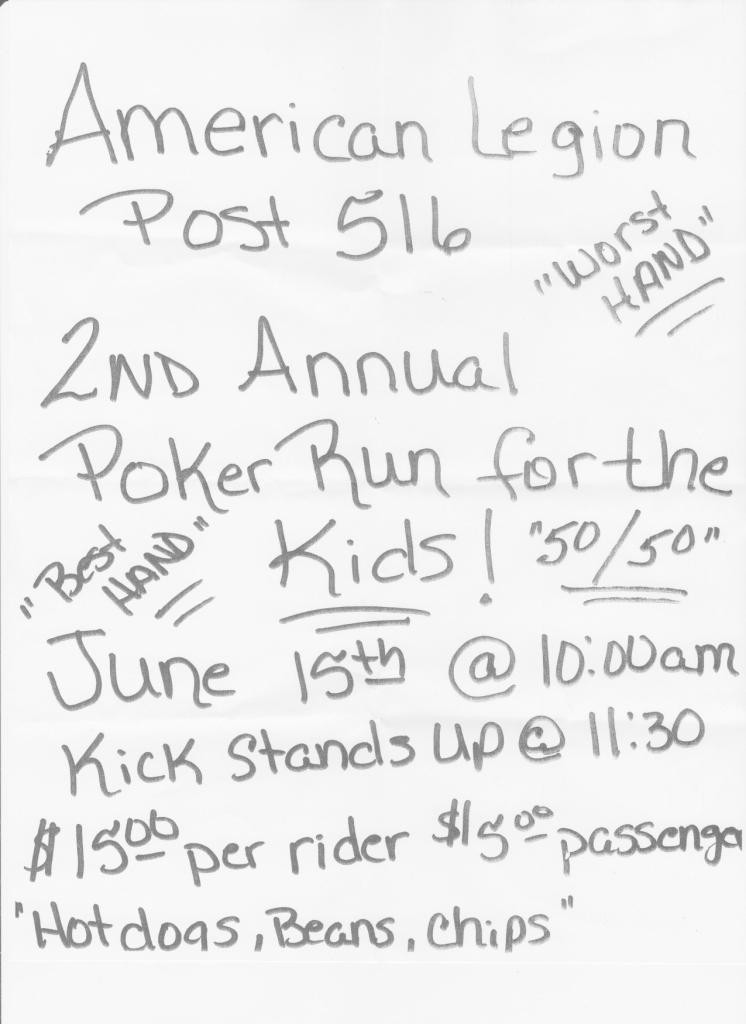 American Legion
Post 516
"Worst
HAND"
2ND Annual
Poker Run for the
Kids! "50/50"
"Best
HAND"
June 15th @ 10:00am
Kick Stands up @ 11:30
$15.00 per rider $15.00 passenger
"Hotdogs, Beans, Chips"